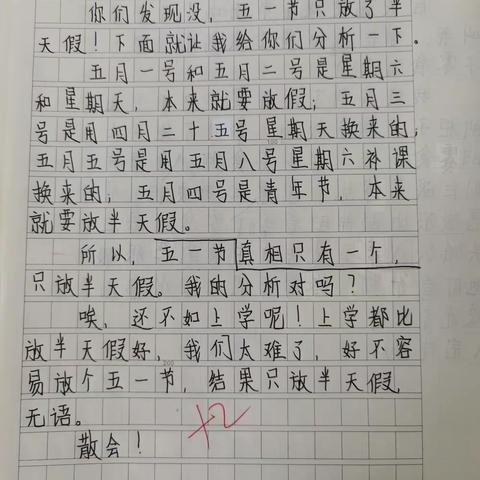 你们发现没，五一节只放了半
天假！下面就让我给你们分析一下。
五月一号和五月二号是星期六
和星期天，本来就要放假；五月三
号是用四月二十五号星期天换来的；
五月五号是用五月八号星期六补课
换来的；五月四号是青年节，本来
就要放半天假。
所以，五一节真相只有一个，
只放半天假。我的分析对吗？
唉，还不如上学呢！上学都比
放半天假好，我们太难了，好不容
易放个五一节，结果只放半天假，
无语。
散会！
+2